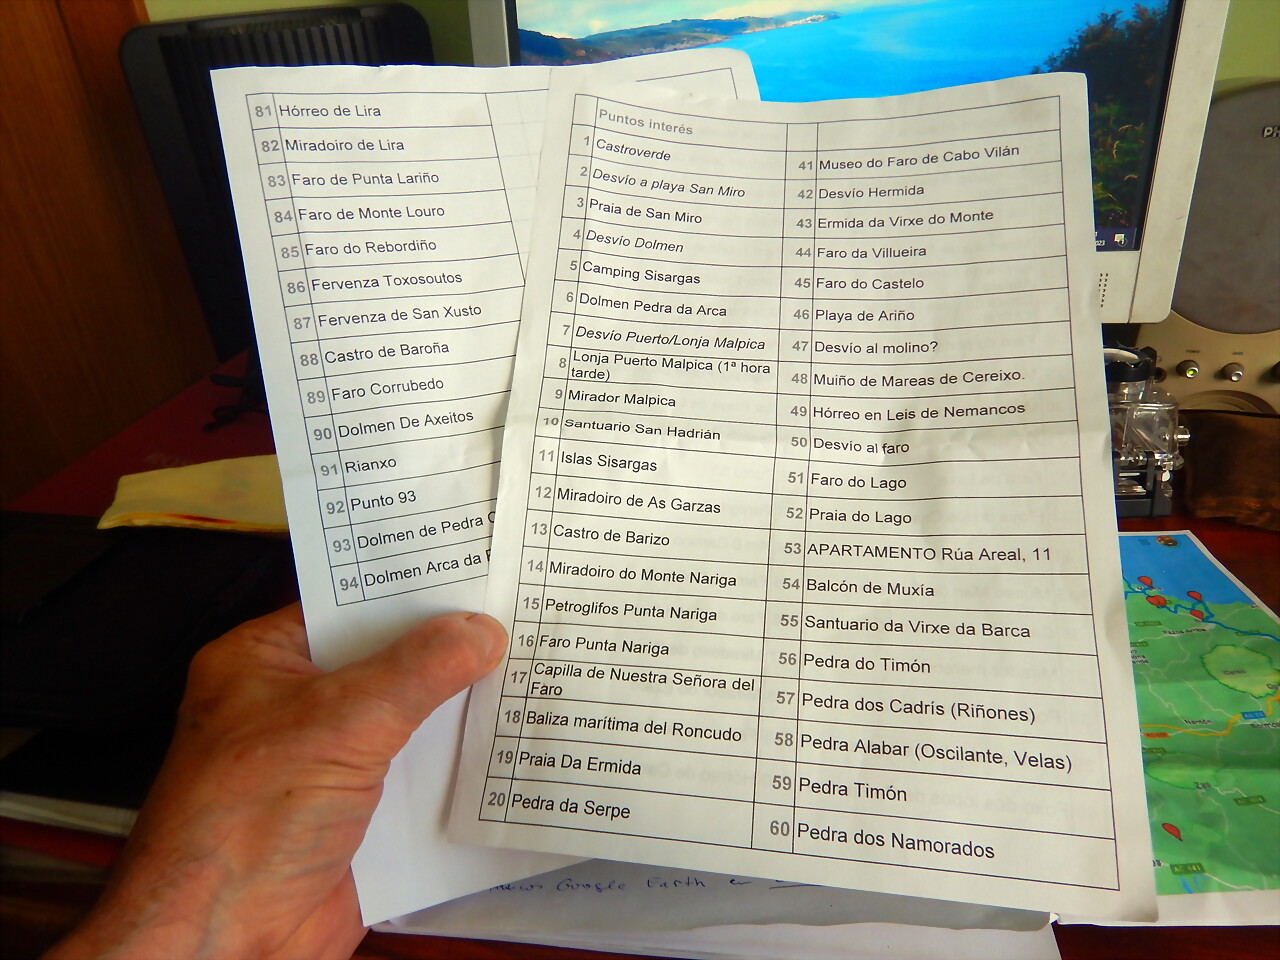 81 Hórreo de Lira
82 Miradoiro de Lira
83 Faro de Punta Lariño
84 Faro de Monte Louro
85 Faro do Rebordiño
86 Fervenza Toxosoutos
87 Fervenza de San Xusto
88 Castro de Baroña
89 Faro Corrubedo
90 Dolmen De Axeitos
91 Rianxo
92 Punto 93
93 Dolmen de Pedra
94 Dolmen Arca da
Puntos interés
1 Castroverde
2 Desvío a playa San Miro
3 Praia de San Miro
4 Desvío Dolmen
5 Camping Sisargas
6 Dolmen Pedra da Arca
7 Desvío Puerto/Lonja Malpica
8 Lonja Puerto Malpica (1ª hora
tarde)
9 Mirador Malpica
10 Santuario San Hadrián
11 Islas Sisargas
12 Miradoiro de As Garzas
13 Castro de Barizo
14 Miradoiro do Monte Nariga
15 Petroglifos Punta Nariga
16 Faro Punta Nariga
17 Capilla de Nuestra Señora del
Faro
18 Baliza marítima del Roncudo
19 Praia Da Ermida
20 Pedra da Serpe
41 Museo do Faro de Cabo Vilán
42 Desvío Hermida
43 Ermida da Virxe do Monte
44 Faro da Villueira
45 Faro do Castelo
46 Playa de Ariño
47 Desvío al molino?
48 Muiño de Mareas de Cereixo.
49 Hórreo en Leis de Nemancos
50 Desvío al faro
51 Faro do Lago
52 Praia do Lago
53 APARTAMENTO Rúa Areal, 11
54 Balcón de Muxía
55 Santuario da Virxe da Barca
56 Pedra do Timón
57 Pedra dos Cadrís (Riñones)
58 Pedra Alabar (Oscilante, Velas)
59 Pedra Timón
60 Pedra dos Namorados
Google Earth